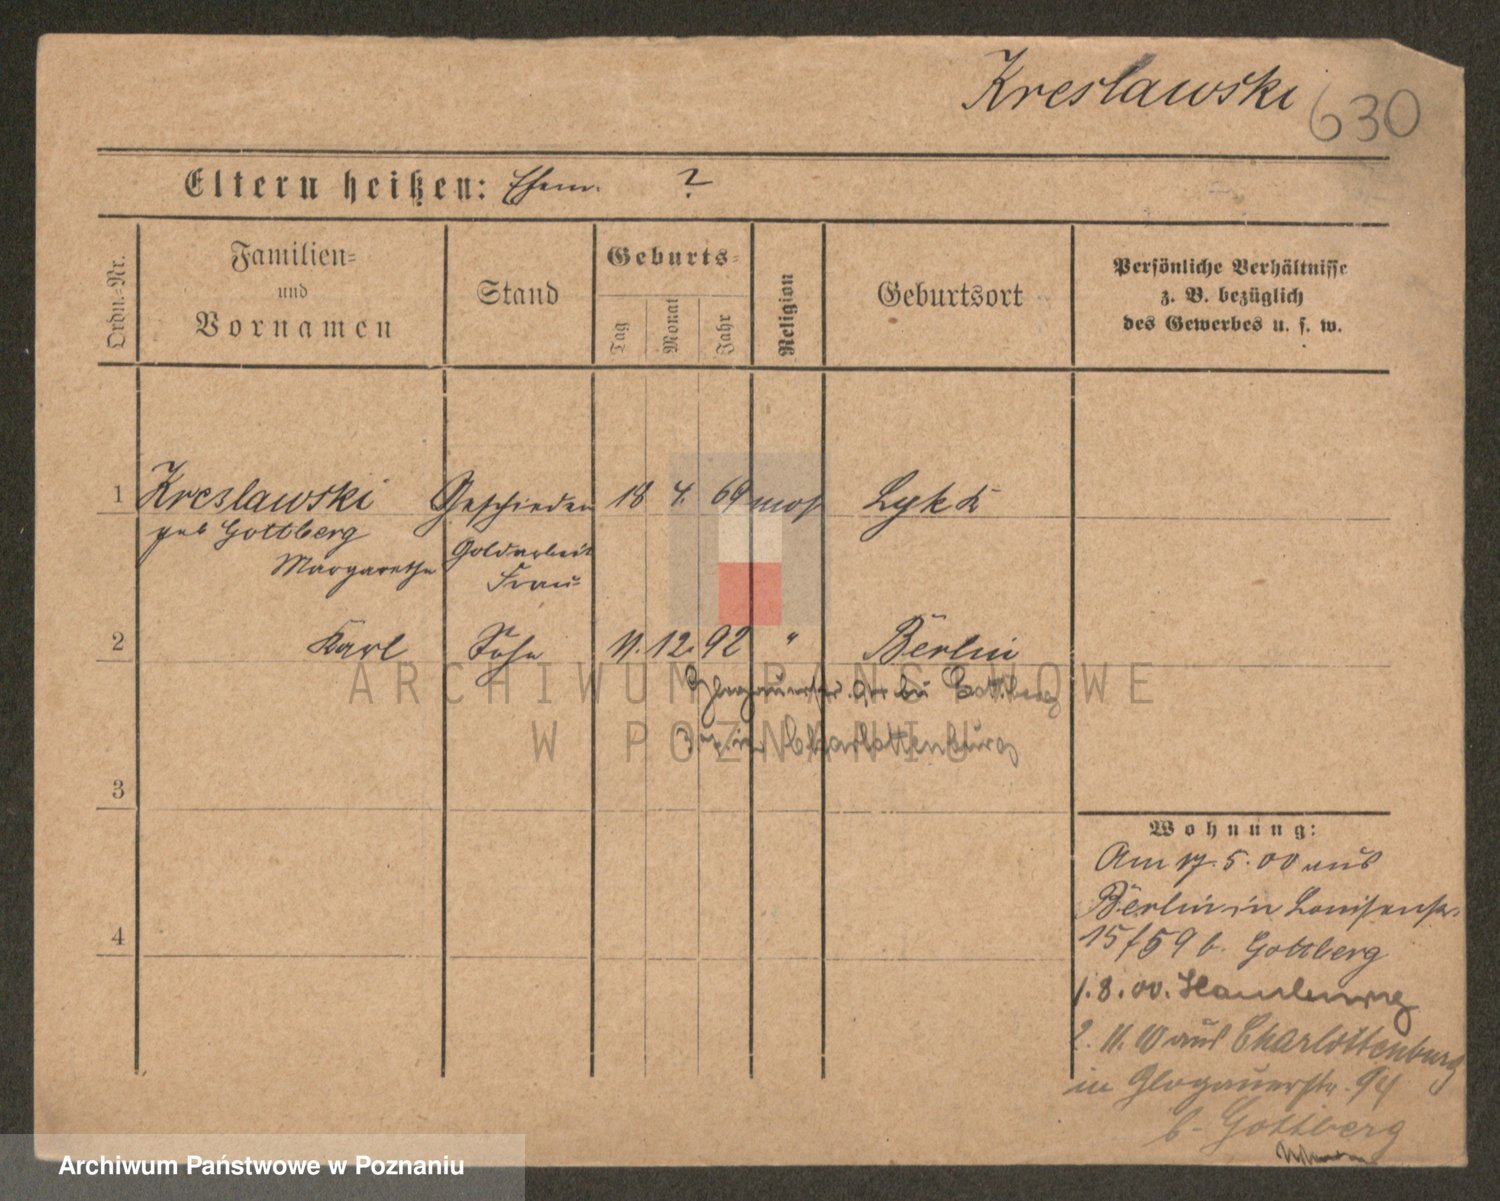 Kreslawski
630
Eltern heißen: Ehem. ?
Ordn.-Nr.
Familien-
und
Vornamen
Stand
Geburts-
Tag
Monat
Jahr
Religion
Geburtsort
Persönliche Verhältnisse
z. B. bezüglich
des Gewerbes u. s. w.
1 Kreslawski Geschieden 18 4. 69 mos Lyk
geb Gottberg Goldarbeit
Margarethe Frau
2 Karl Sohn 11. 12. 92 " Berlin
Glogauerstr. bei Gottberg
in Charlottenburg
3
4
Wohnung:
Am 17. 5. 00 aus
Berlin in Louisenstr.
15/59 b. Gottberg
1. 8. 00. Hamburg
2. 11. 10 aus Charlottenburg
in Glogauerstr. 94
b. Gottberg
ARCHIWUM PAŃSTWOWE
W POZNANIU
Archiwum Państwowe w Poznaniu